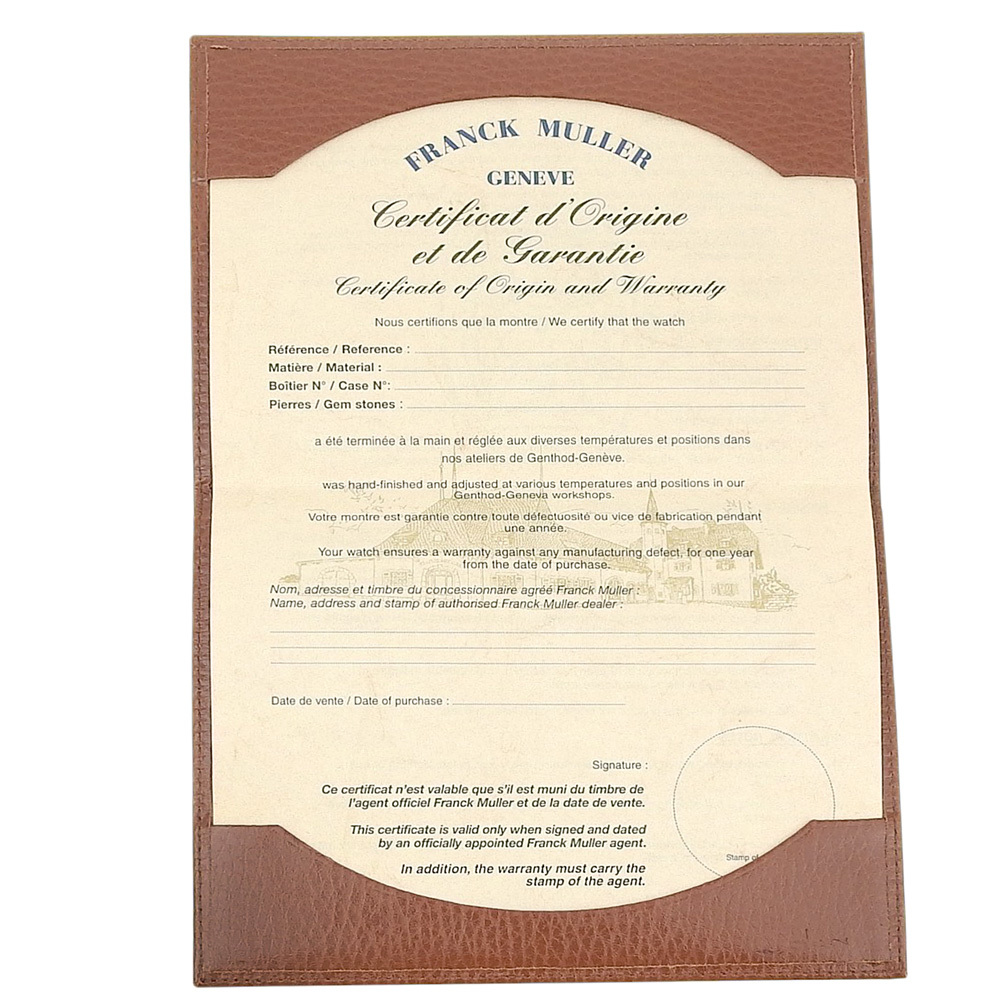 FRANCK MULLER
GENEVE
Certificat d'Origine
et de Garantie
Certificate of Origin and Warranty
Nous certifions que la montre / We certify that the watch
Référence / Reference :
Matière / Material :
Boîtier N° / Case N°:
Pierres / Gem stones :
a été terminée à la main et réglée aux diverses températures et positions dans
nos ateliers de Genthod-Genève.
was hand-finished and adjusted at various temperatures and positions in our
Genthod-Geneva workshops.
Votre montre est garantie contre toute défectuosité ou vice de fabrication pendant
une année.
Your watch ensures a warranty against any manufacturing defect, for one year
from the date of purchase.
Nom, adresse et timbre du concessionnaire agréé Franck Muller :
Name, address and stamp of authorised Franck Muller dealer :
Date de vente / Date of purchase :
Signature :
Ce certificat n'est valable que s'il est muni du timbre de
l'agent officiel Franck Muller et de la date de vente.
This certificate is valid only when signed and dated
by an officially appointed Franck Muller agent.
In addition, the warranty must carry the
stamp of the agent.
Stamp of